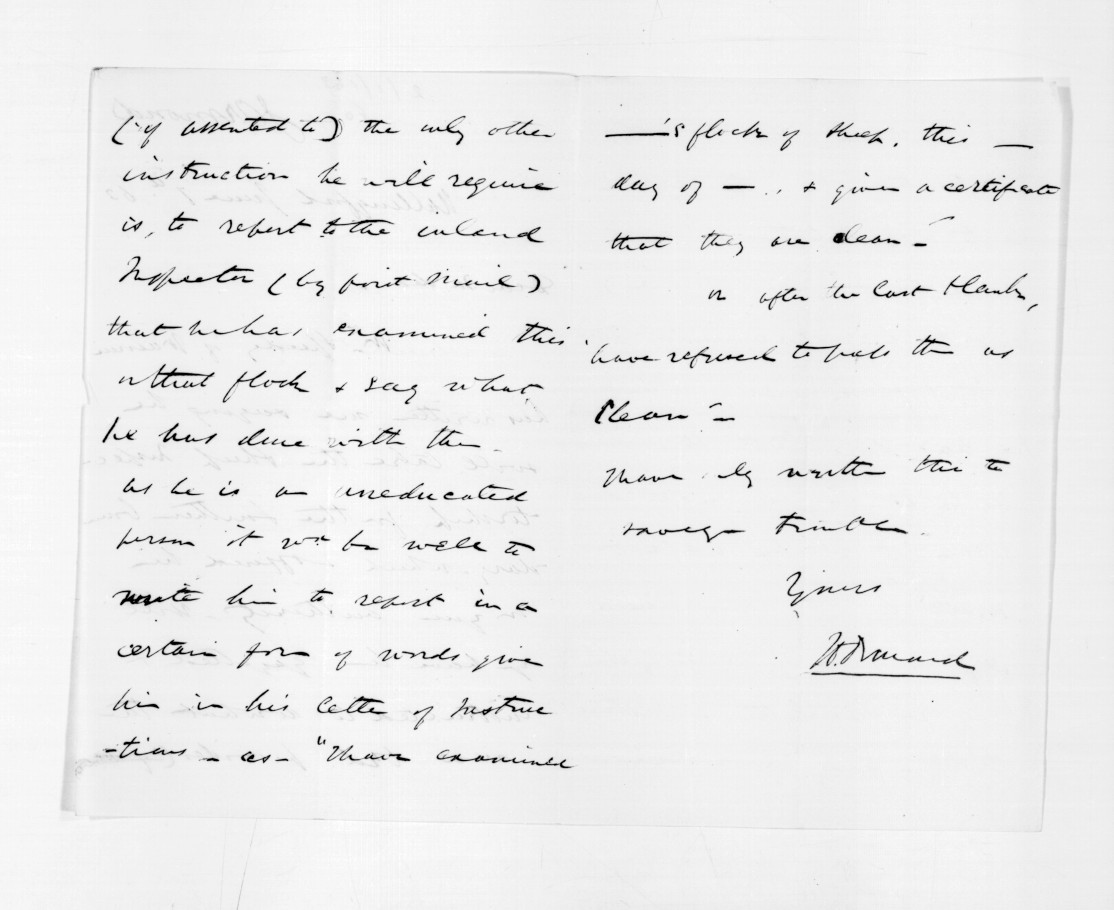 (if assented to) the only other
instruction he will require
is, to report to the inland
Inspector (by first mail)
that he has examined this
or that flock & say what
he has done with them
as he is an uneducated
person it wd be well to
write him to report in a
certain form of words given
him in his letter of Instruc
-tions - as - "I have examined
———'s flock of sheep, this —
day of — . & given a certificate
that they are clean -"
or after the last blank,
have refused to pass them as
clean" -
I have only written this to
save you trouble.
Yours
H. Ormond